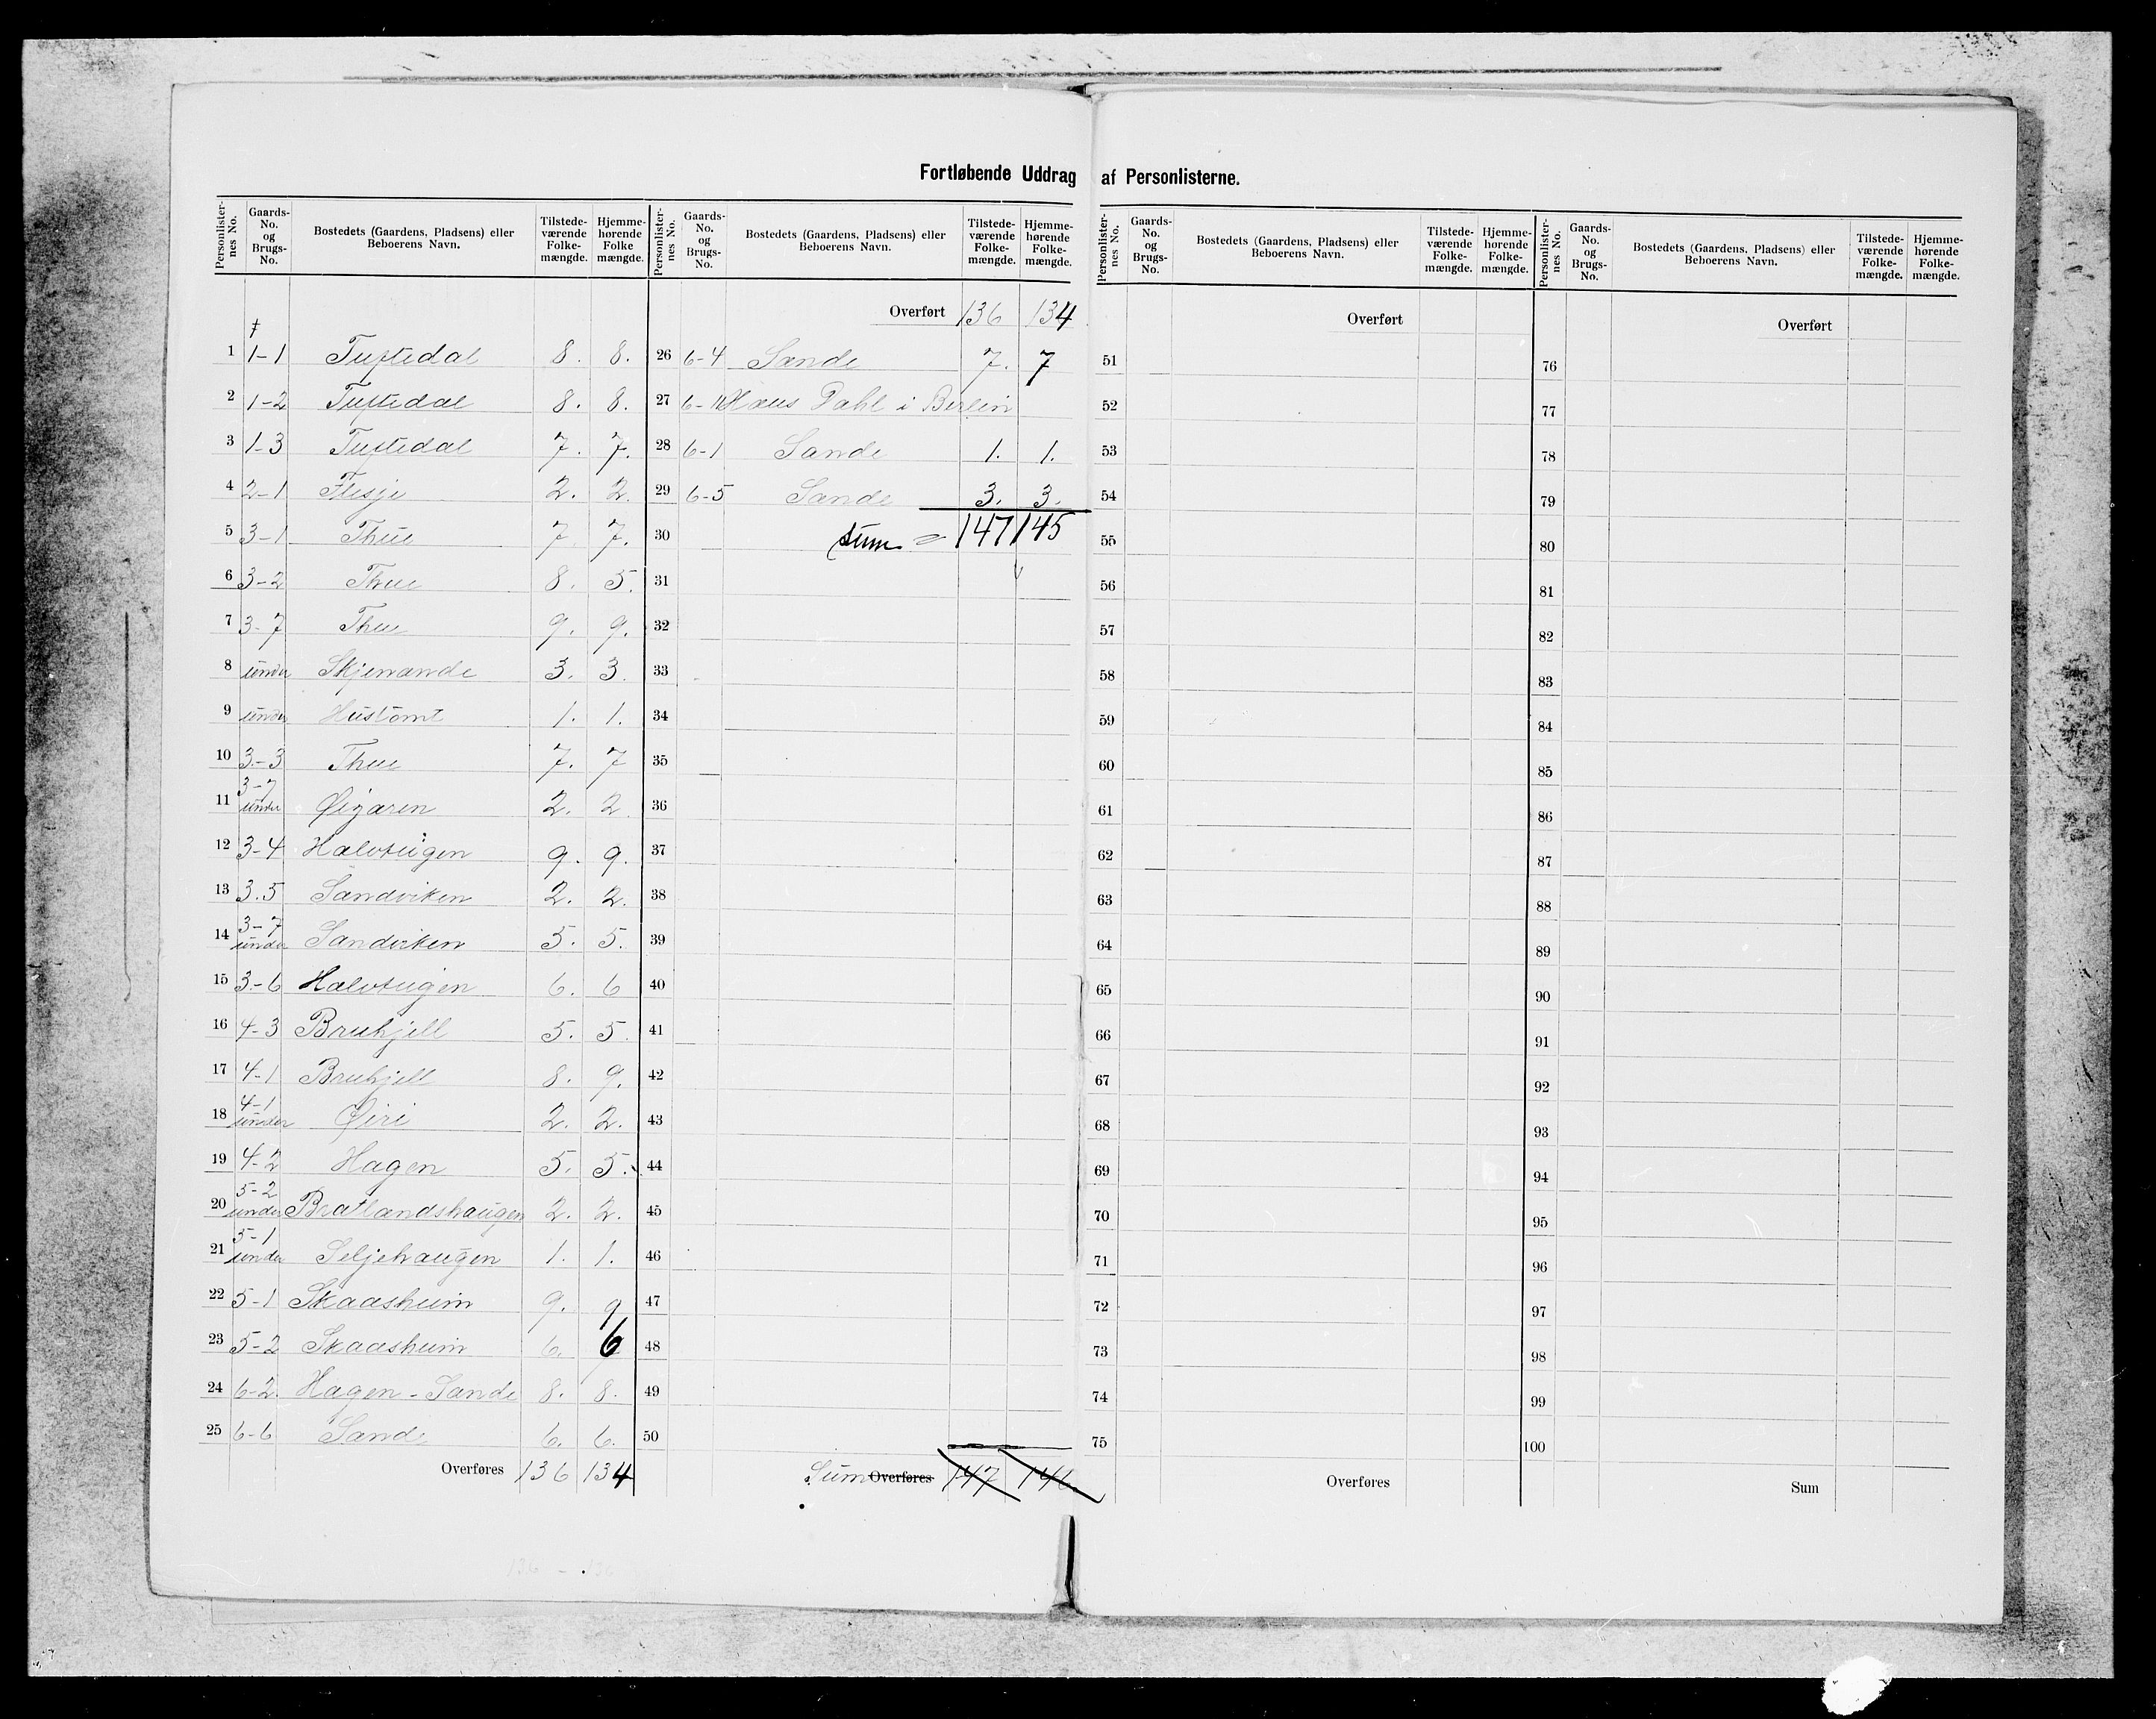 Fortløbende Uddrag af Personlisterne.
Personlister-nes No. Gaards-No. og Brugs-No. Bostedets (Gaardens, Pladsens) eller Beboerens Navn. Tilstede-værende Folke-mængde. Hjemme-hørende Folke mængde.
1 1-1 Tuftedal 8. 8.
2 1-2 Tuftedal 8. 8.
3 1-3 Tuftedal 7. 7.
4 2-1 Flesje 2. 2.
5 3-1 Thue 7 7.
6 3-2 Thue 8. 5.
7 3-7 Thue 9. 9.
8 under Skjerrande 3. 3.
9 under Hustomt 1. 1.
10 3-3 Thue 7. 7
11 3-7 under Øigaren 2. 2
12 3-4 Halvteigen 9. 9.
13 3.5 Sandviken 2. 2.
14 3-7 under Sandviken 5. 5.
15 3-6 Halvteigen 6. 6
16 4-3 Bruhjell 5. 5.
17 4-1 Bruhjell 8. 9.
18 4-1 under Øiri 2. 2.
19 4-2 Hagen 5. 5.
20 5-2 under Bratlandshaugen 2. 2.
21 5-1 under Seljehaugen 1. 1.
22 5-1 Skaasheim 9. 9
23 5-2 Skaasheim 6. 6
24 6-2. Hagen - Sande 8. 8.
25 6-6 Sande 6. 6.
Overføres 136 134
Personlister-nes No. Gaards-No. og Brugs-No. Bostedets (Gaardens, Pladsens) eller Beboerens Navn. Tilstede-værende Folke-mængde. Hjemme-hørende Folke-mængde.
Overført 136 134
26 6-4 Sande 7. 7
27 6-1 Hans Dahl i Berlin
28 6-1 Sande 1. 1.
29 6-5 Sande 3. 3.
30 sum = 147 145
31
32
33
34
35
36
37
38
39
40
41
42
43
44
45
46
47
48
49
50
Sum Overføres 147 146
Personlister-nes No. Gaards-No. og Brugs-No. Bostedets (Gaardens, Pladsens) eller Beboerens Navn. Tilstede-værende Folke-mængde. Hjemme-hørende Folke-mængde.
Overført
51
52
53
54
55
56
57
58
59
60
61
62
63
64
65
66
67
68
69
70
71
72
73
74
75
Overføres
Personlister-nes No. Gaards-No. og Brugs-No. Bostedets (Gaardens, Pladsens) eller Beboerens Navn. Tilstede-værende Folke-mængde. Hjemme-hørende Folke-mængde.
Overført
76
77
78
79
80
81
82
83
84
85
86
87
88
89
90
91
92
93
94
95
96
97
98
99
100
Sum